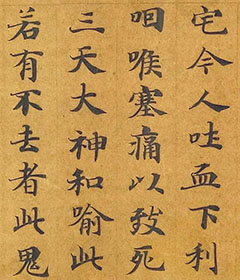 宅今人吐血下利
咽喉塞痛以致死
三天大神和喻此
若有不去者此鬼